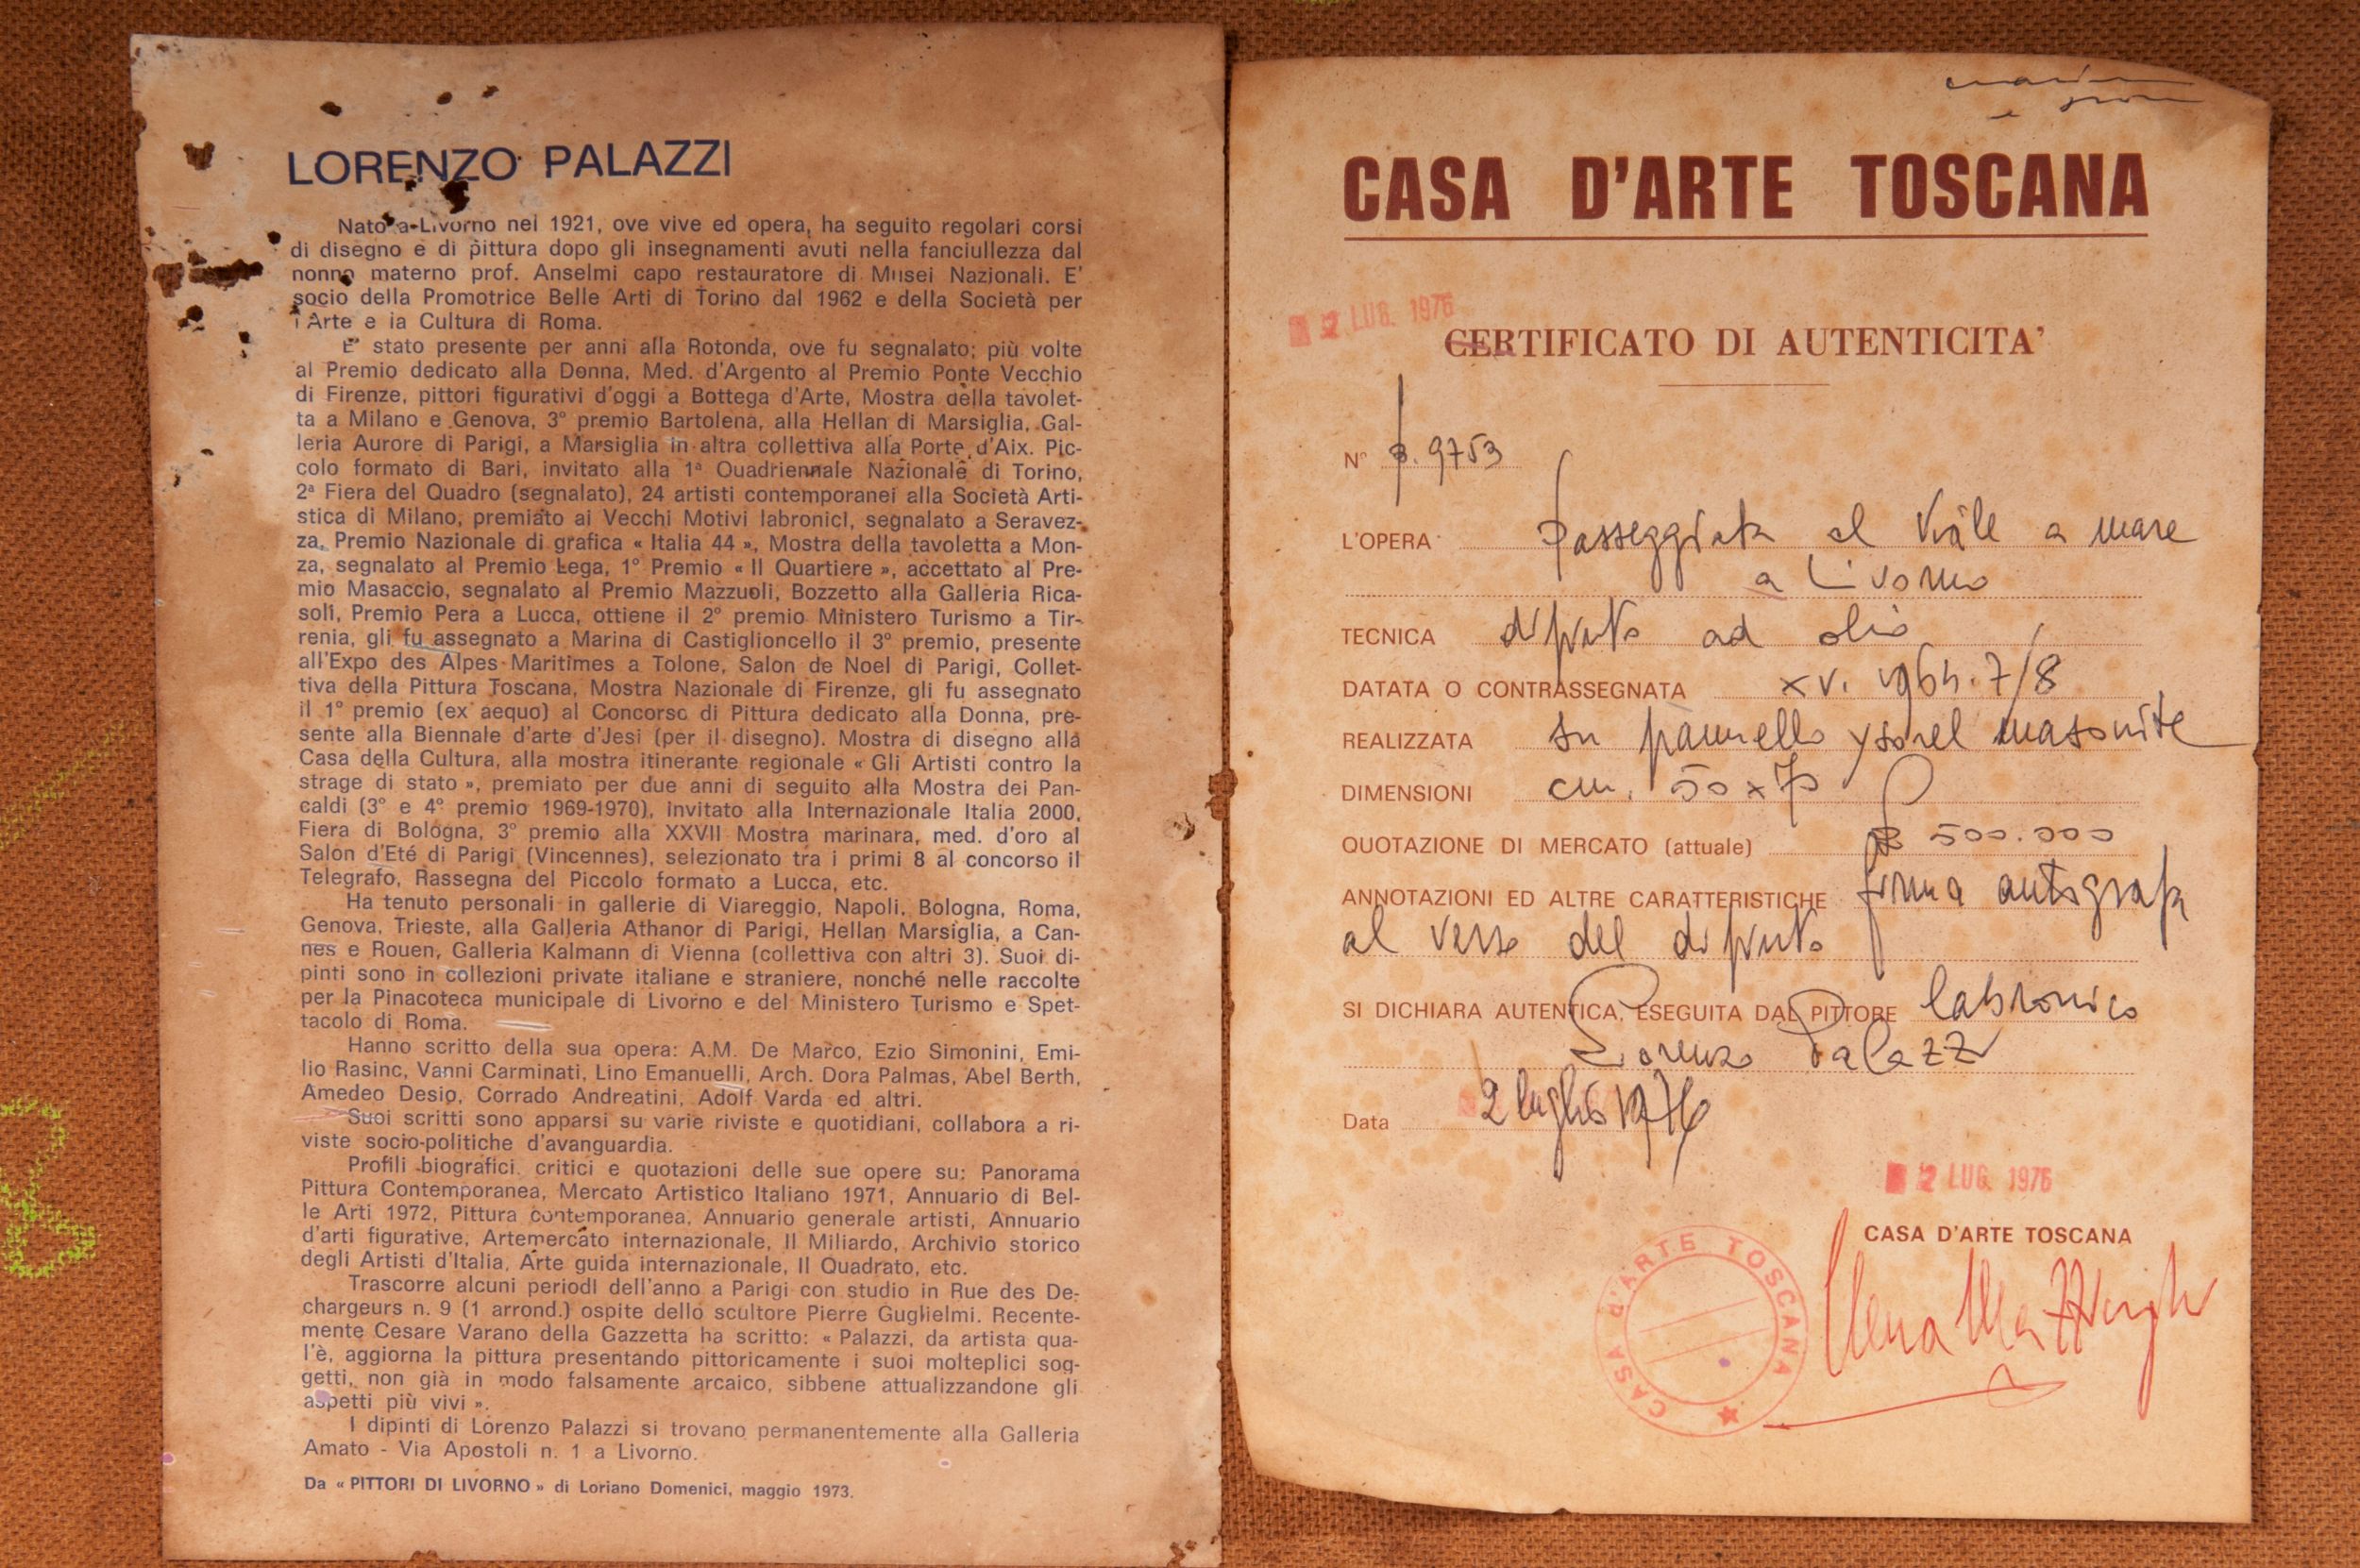 LORENZO PALAZZI
Nato a Livorno nel 1921, ove vive ed opera, ha seguito regolari corsi
di disegno e di pittura dopo gli insegnamenti avuti nella fanciullezza dal
nonno materno prof. Anselmi capo restauratore di Musei Nazionali. E'
socio della Promotrice Belle Arti di Torino dal 1962 e della Società per
l'Arte e la Cultura di Roma.
E' stato presente per anni alla Rotonda, ove fu segnalato; più volte
al Premio dedicato alla Donna, Med. d'Argento al Premio Ponte Vecchio
di Firenze, pittori figurativi d'oggi a Bottega d'Arte, Mostra della tavolet-
ta a Milano e Genova, 3° premio Bartolena, alla Hellan di Marsiglia, Gal-
leria Aurore di Parigi, a Marsiglia in altra collettiva alla Porte d'Aix. Pic-
colo formato di Bari, invitato alla 1ª Quadriennale Nazionale di Torino,
2ª Fiera del Quadro (segnalato), 24 artisti contemporanei alla Società Arti-
stica di Milano, premiato ai Vecchi Motivi labronici, segnalato a Seravez-
za, Premio Nazionale di grafica « Italia 44 », Mostra della tavoletta a Mon-
za, segnalato al Premio Lega, 1° Premio « Il Quartiere », accettato al Pre-
mio Masaccio, segnalato al Premio Mazzuoli, Bozzetto alla Galleria Rica-
soli, Premio Pera a Lucca, ottiene il 2° premio Ministero Turismo a Tir-
renia, gli fu assegnato a Marina di Castiglioncello il 3° premio, presente
all'Expo des Alpes Maritimes a Tolone, Salon de Noel di Parigi, Collet-
tiva della Pittura Toscana, Mostra Nazionale di Firenze, gli fu assegnato
il 1° premio (ex aequo) al Concorso di Pittura dedicato alla Donna, pre-
sente alla Biennale d'arte d'Jesi (per il disegno). Mostra di disegno alla
Casa della Cultura, alla mostra itinerante regionale « Gli Artisti contro la
strage di stato », premiato per due anni di seguito alla Mostra dei Pan-
caldi (3° e 4° premio 1969-1970), invitato alla Internazionale Italia 2000,
Fiera di Bologna, 3° premio alla XXVII Mostra marinara, med. d'oro al
Salon d'Eté di Parigi (Vincennes), selezionato tra i primi 8 al concorso il
Telegrafo, Rassegna del Piccolo formato a Lucca, etc.
Ha tenuto personali in gallerie di Viareggio, Napoli, Bologna, Roma,
Genova, Trieste, alla Galleria Athanor di Parigi, Hellan Marsiglia, a Can-
nes e Rouen, Galleria Kalmann di Vienna (collettiva con altri 3). Suoi di-
pinti sono in collezioni private italiane e straniere, nonché nelle raccolte
per la Pinacoteca municipale di Livorno e del Ministero Turismo e Spet-
tacolo di Roma.
Hanno scritto della sua opera: A.M. De Marco, Ezio Simonini, Emi-
lio Rasinc, Vanni Carminati, Lino Emanuelli, Arch. Dora Palmas, Abel Berth,
Amedeo Desio, Corrado Andreatini, Adolf Varda ed altri.
Suoi scritti sono apparsi su varie riviste e quotidiani, collabora a ri-
viste socio-politiche d'avanguardia.
Profili biografici, critici e quotazioni delle sue opere su: Panorama
Pittura Contemporanea, Mercato Artistico Italiano 1971, Annuario di Bel-
le Arti 1972, Pittura contemporanea, Annuario generale artisti, Annuario
d'arti figurative, Artemercato internazionale, Il Miliardo, Archivio storico
degli Artisti d'Italia, Arte guida internazionale, Il Quadrato, etc.
Trascorre alcuni periodi dell'anno a Parigi con studio in Rue des De-
chargeurs n. 9 (1 arrond.) ospite dello scultore Pierre Guglielmi. Recente-
mente Cesare Varano della Gazzetta ha scritto: « Palazzi, da artista qua-
l'è, aggiorna la pittura presentando pittoricamente i suoi molteplici sog-
getti, non già in modo falsamente arcaico, sibbene attualizzandone gli
aspetti più vivi ».
I dipinti di Lorenzo Palazzi si trovano permanentemente alla Galleria
Amato - Via Apostoli n. 1 a Livorno.
Da « PITTORI DI LIVORNO » di Loriano Domenici, maggio 1973.
CASA D'ARTE TOSCANA
2 LUG. 1976
CERTIFICATO DI AUTENTICITA'
N° 9753
L'OPERA passeggiata al Viale a mare
a Livorno
TECNICA dipinto ad olio
DATATA O CONTRASSEGNATA XV. 1964. 7/8
REALIZZATA su pannello ysorel masonite
DIMENSIONI cm. 50 x 70
QUOTAZIONE DI MERCATO (attuale) £ 500.000
ANNOTAZIONI ED ALTRE CARATTERISTICHE firma autografa
al verso del dipinto
SI DICHIARA AUTENTICA, ESEGUITA DAL PITTORE labronico
Lorenzo Palazzi
Data 2 luglio 1976
2 LUG. 1976
CASA D'ARTE TOSCANA
CASA d'ARTE TOSCANA